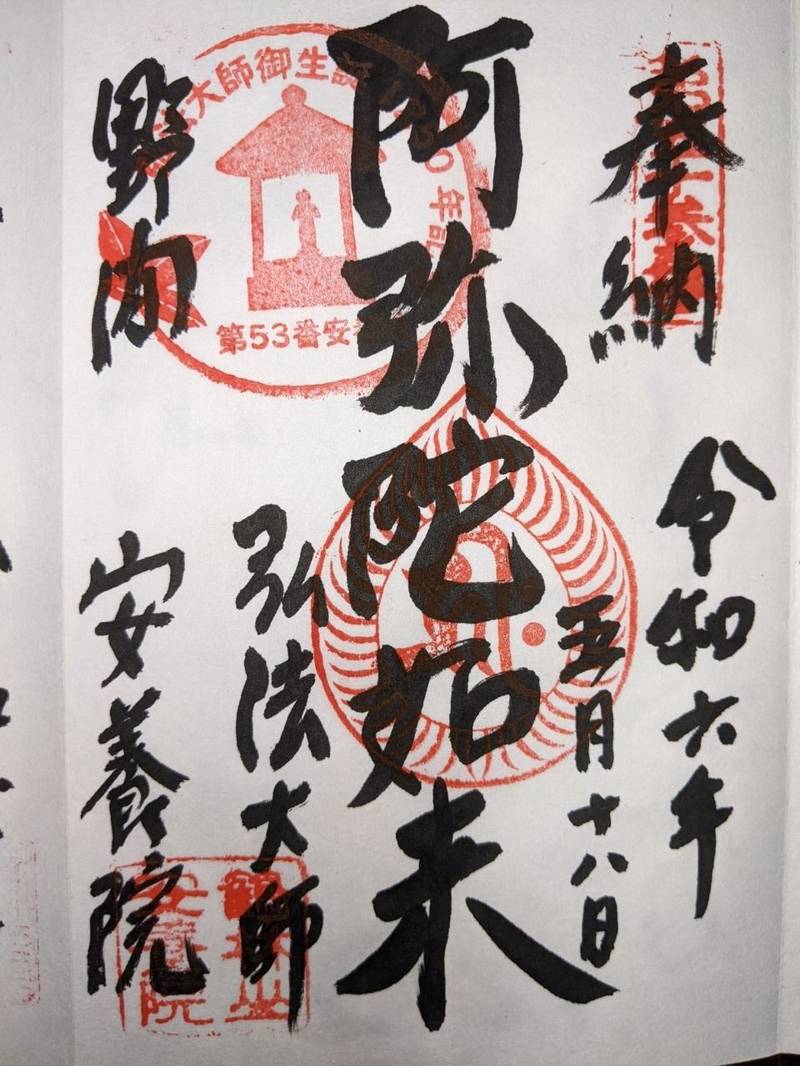 奉納
令和六年
五月十八日
阿弥陀如来
弘法大師
野間
安養院
大師御生誕
年記
第53番安養
安養院